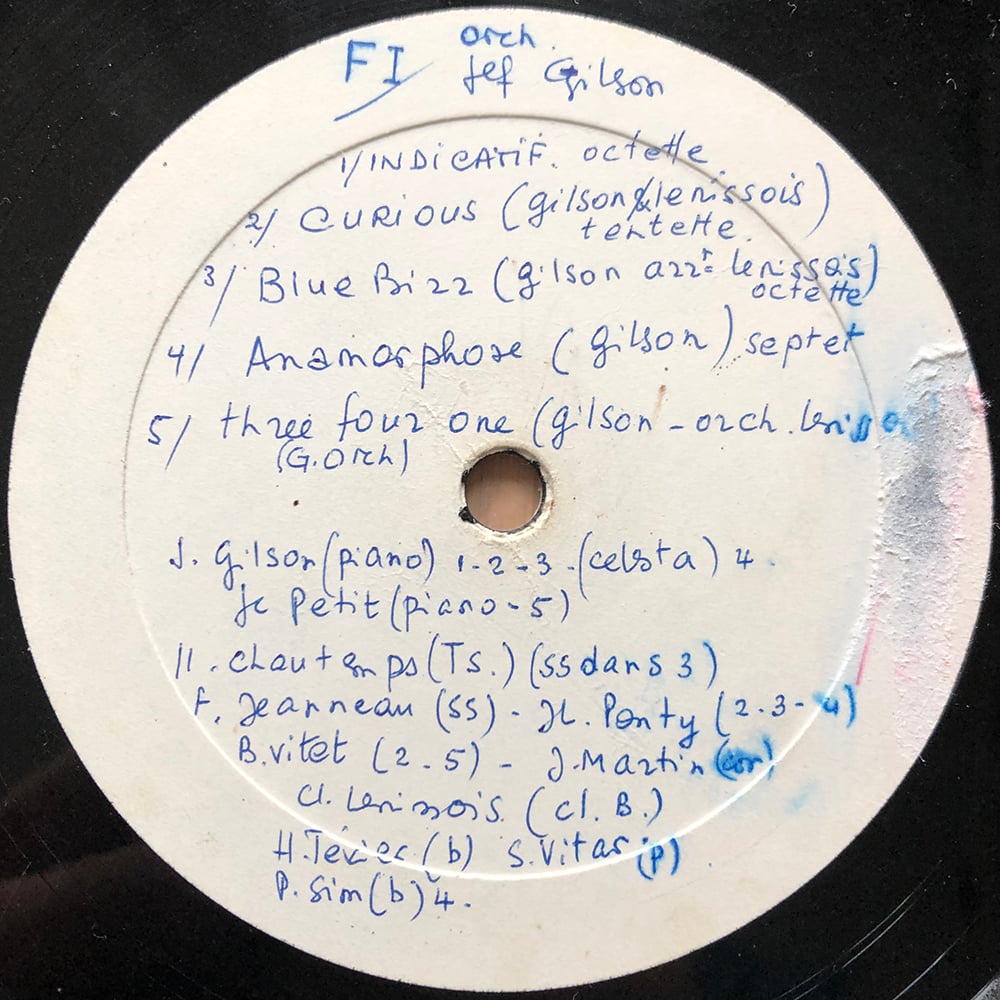 FI
orch.
Jef Gilson
1/ INDICATIF. octette
2/ CURIOUS (gilson & lenissois)
tentette.
3/ Blue Bizz (gilson arrt lenissois)
octette
4/ Anamorphose (gilson) septet
5/ three four one (gilson - orch.
(G. Orch)
J. Gilson (piano) 1-2-3-(celesta) 4.
Jc Petit (piano-5)
chautemps (Ts.) (ss dans 3)
F. Jeanneau (ss) - JL. Ponty (2.3-4)
B. vitet (2.5) - J. Martin (cor)
Cl. Lenissois (cl. B.)
H. Texier (b) S. Vitas (p)
P. Sim (b) 4.